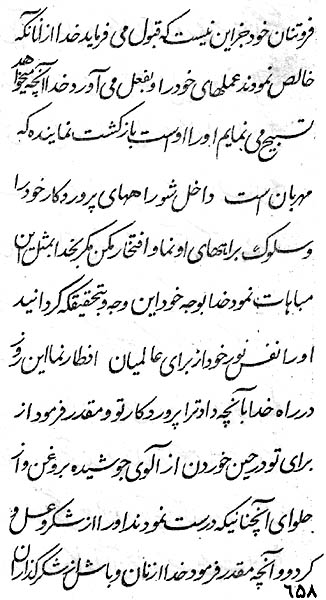 فروتنان خود جز این نیست که قبول می فرماید خدا از آنانکه
خالص نمودند عملهای خود را و بفعل می آورد خدا آنچه میخواهد
تسبیح می نمایم او را اوست بازگشت نماینده که
مهربان است داخل شو راههای پروردکار خود را
و سلوک براههای او نما و افتخار مکن مکر بخدا بمثل این
مباهات نمود خدا بوجه خود این وجه و بتحقیقکه کردانید
او را نفس نور خود از برای عالمیان افطار نما این روز
در راه خدا بآنچه داد ترا پروردکار تو و مقدر فرمود از
برای تو در حین خوردن از آلوی جوشیده بروغن و از
حلوای آنچنانیکه درست نمودند او را از شکر و عسل و
کردو و آنچه مقدر فرمود خدا از نان و باش از شکر کذاران
۶۵۸